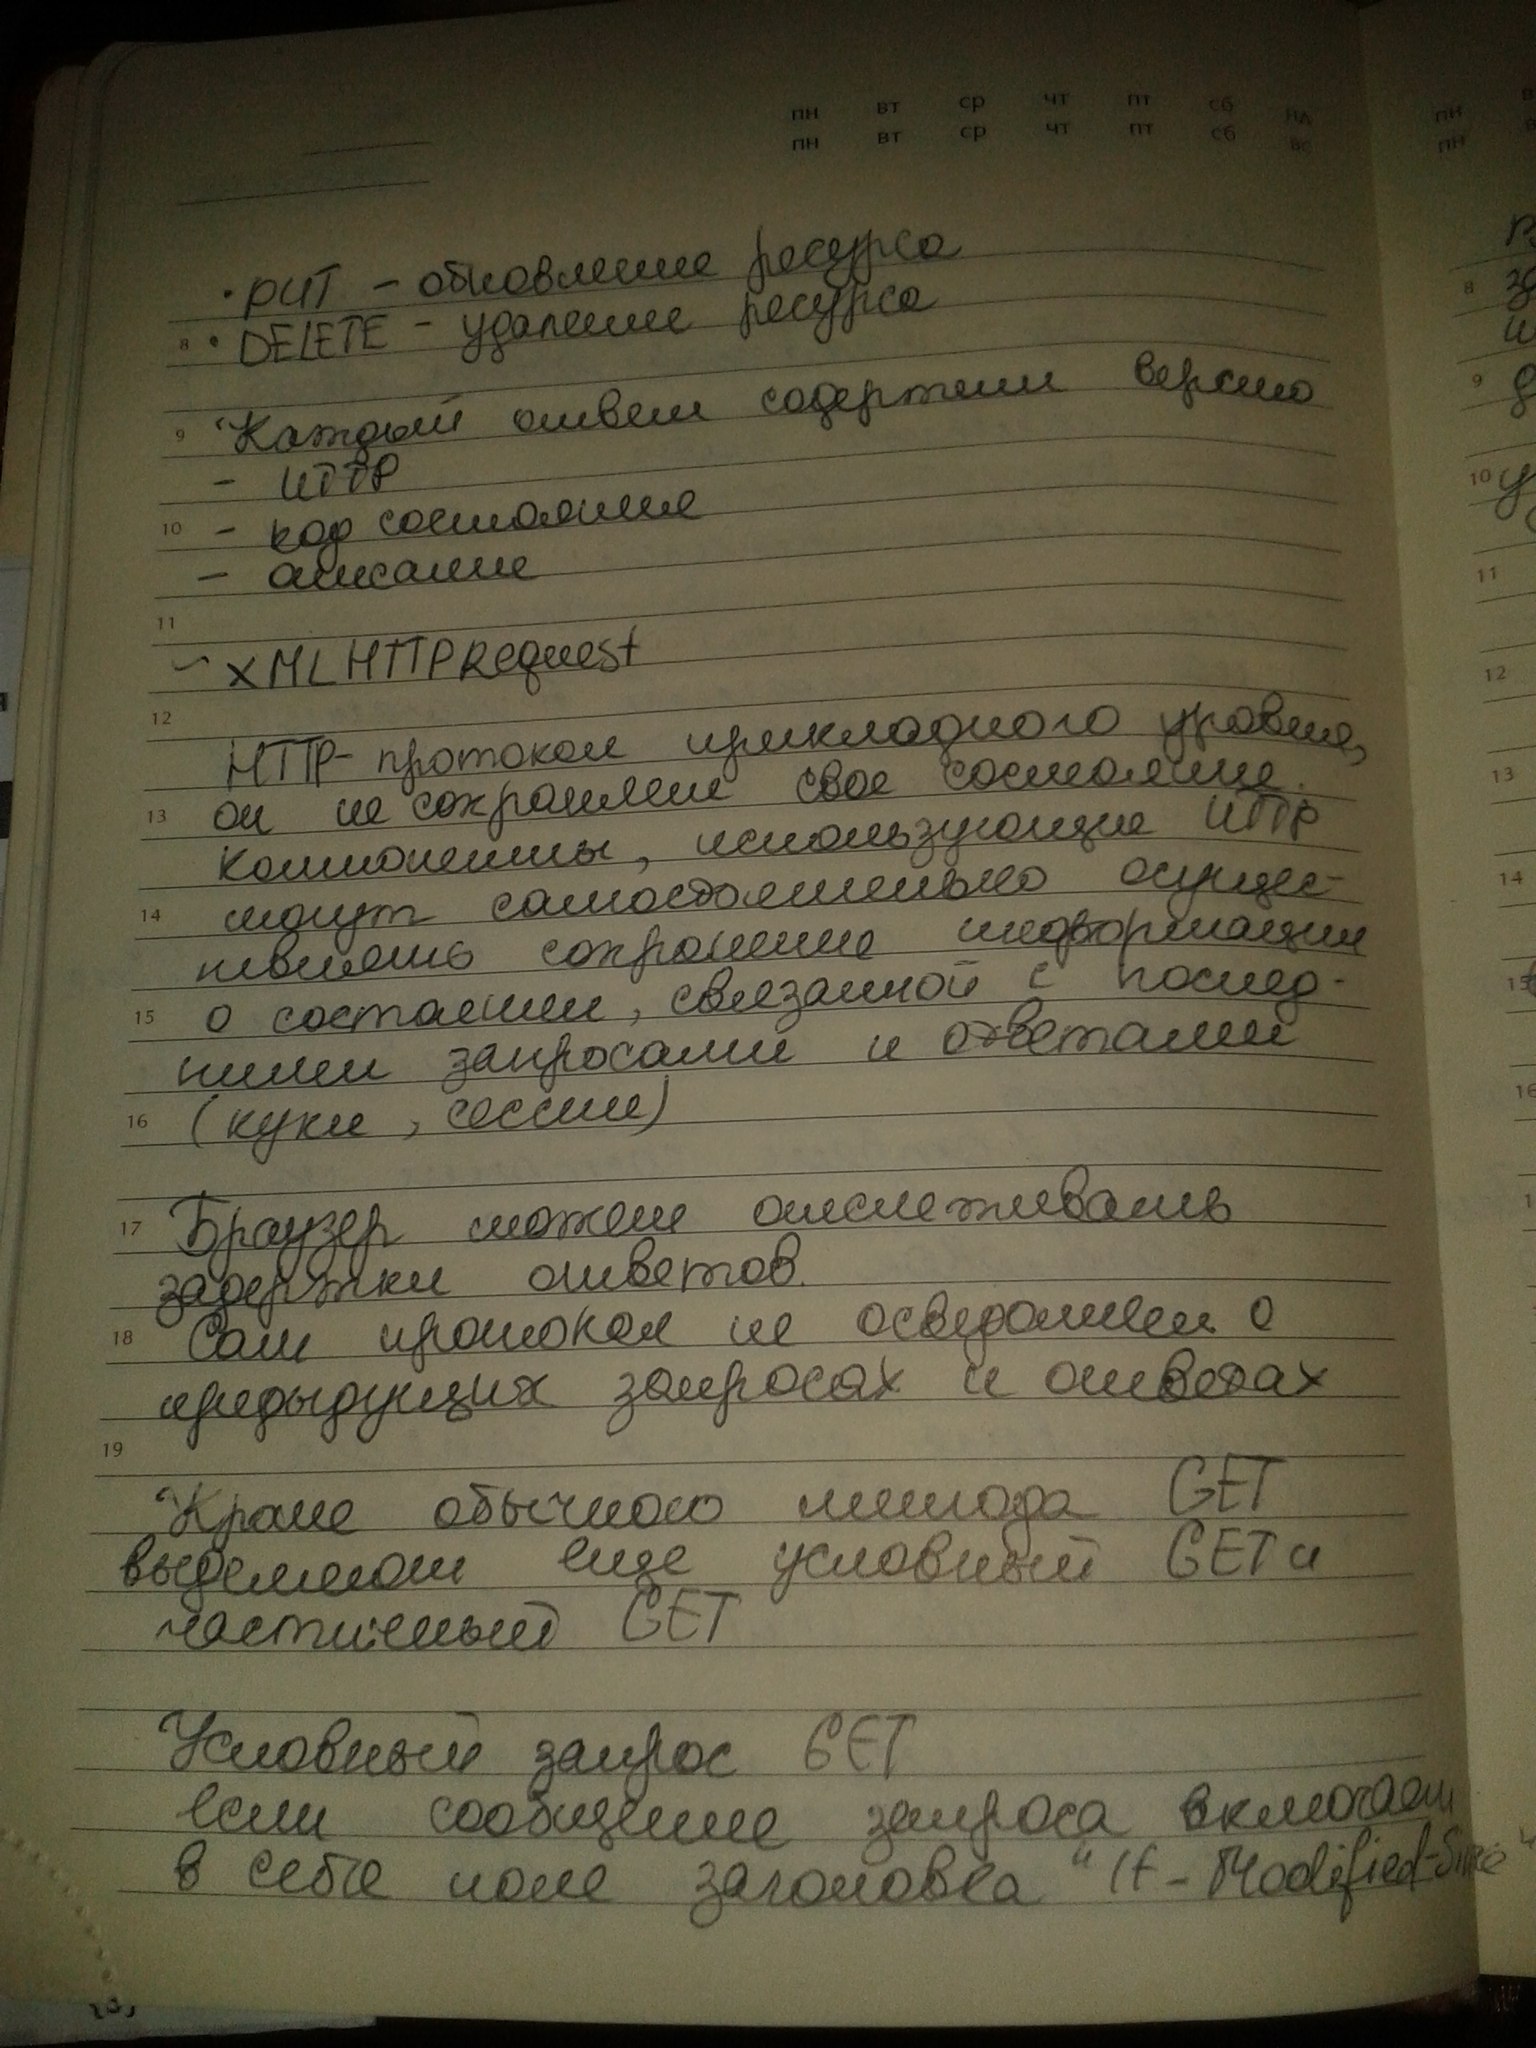 пн вт ср чт пт сб нд
пн вт ср чт пт сб вс
• PUT – обновление ресурса
8 • DELETE – удаление ресурса
9 Каждый ответ содержит версию
– HTTP
10 – код состояния
– описание
11
– XMLHTTPRequest
12
HTTP- протокол прикладного уровня,
13 он не сохраняет свое состояние.
Компоненты, использующие HTTP
14 могут самостоятельно осущес-
твлять сохранение информации
15 о состоянии, связанной с послед-
ними запросами и ответами
16 (куки, сессии)
17 Браузер может отслеживать
задержки ответов.
18 Сам протокол не осведомлен о
предыдущих запросах и ответах
19
Кроме обычного метода GET
выделяют еще условный GET и
частичный GET
Условный запрос GET
если сообщение запроса включает
в себя поле заголовка "If-Modified-Since"
пн
пн
8
9
10
11
12
13
14
15
16